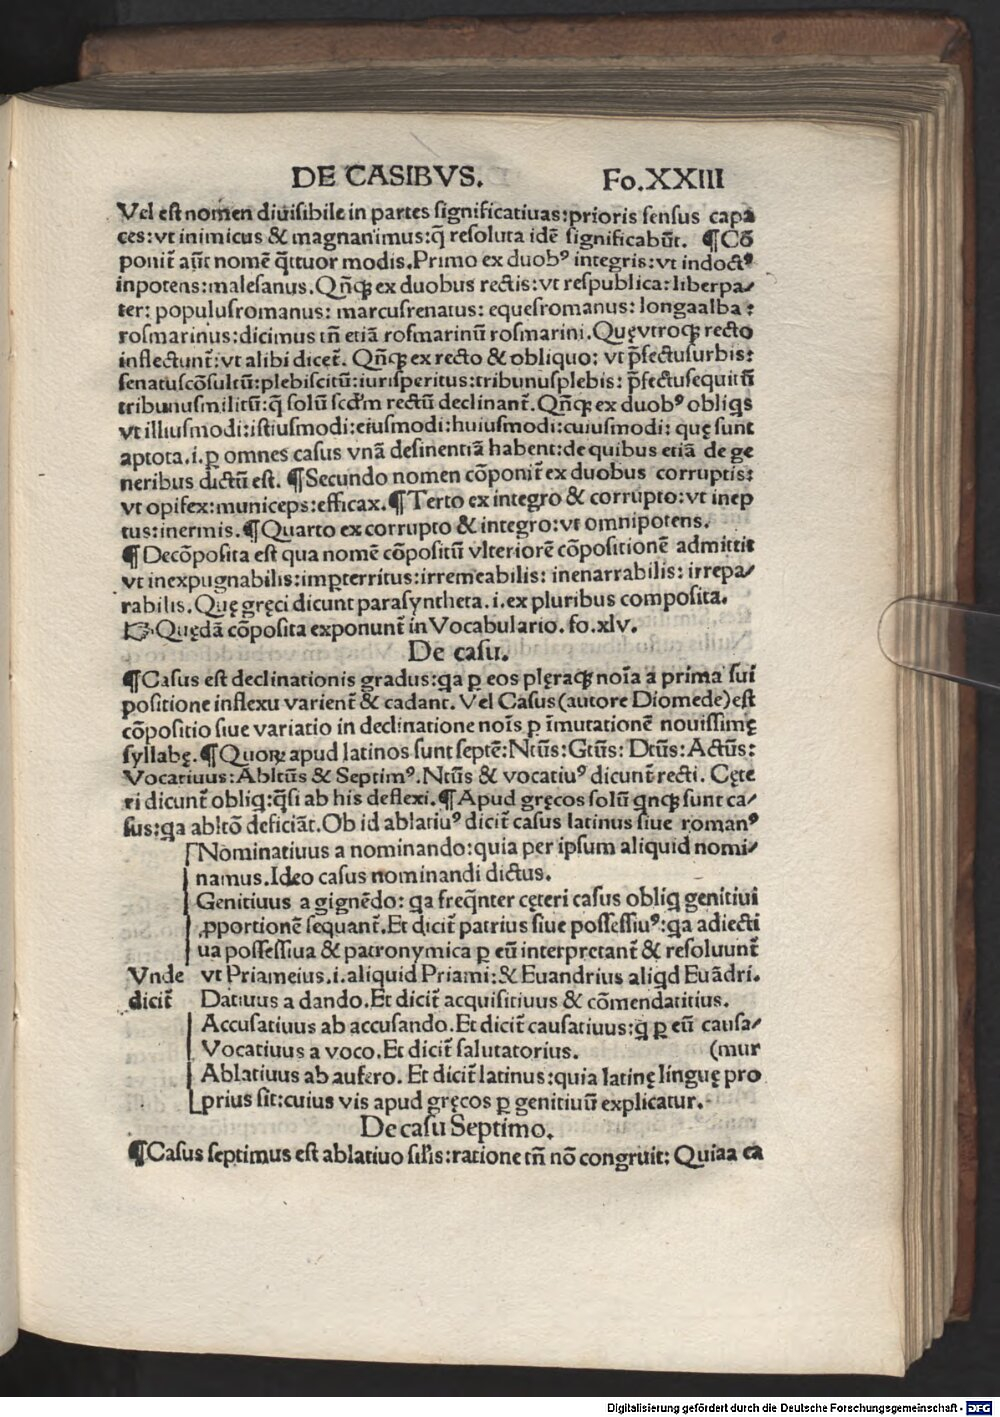 DE CASIBVS. Fo.XXIII
Vel est nomen diuisibile in partes significatiuas:prioris sensus capa
ces:vt inimicus & magnanimus:q̃ resoluta idẽ significabũt. ¶Cõ
ponit̃ aũt nomẽ q̃ttuor modis.Primo ex duobꝰ integris:vt indoctꝰ
inpotens:malesanus.Qñcꝗ ex duobus rectis:vt respublica:liberpa/
ter: populusromanus: marcusrenatus: equesromanus: longaalba:
rosmarinus:dicimus tñ etiã rosmarinũ rosmarini.Quęvtrocꝗ recto
inflectunt̃:vt alibi dicet̃. Qñcꝗ ex recto & obliquo: vt p̃fectusurbis:
senatuscõsultũ:plebiscitũ:iurisperitus:tribunusplebis: p̃fectusequitũ
tribunusmilitũ:q̃ solũ scd̃m rectũ declinant̃.Qñcꝗ ex duobꝰ obliqs
vt illiusmodi:istiusmodi:eiusmodi:huiusmodi:cuiusmodi: quę sunt
aptota.i.ꝑ omnes casus vnã desinentiã habent:de quibus etiã de ge
neribus dictũ est. ¶Secundo nomen cõponit̃ ex duobus corruptis:
vt opifex:municeps:efficax.¶Tertio ex integro & corrupto:vt inep
tus:inermis.¶Quarto ex corrupto & integro:vt omnipotens.
¶Decõposita est qua nomẽ cõpositũ vlteriorẽ cõpositionẽ admittit
vt inexpugnabilis:imꝑterritus:irremeabilis: inenarrabilis: irrepa/
rabilis.Quę gręci dicunt parasyntheta.i.ex pluribus composita.
☞Quędã cõposita exponunt̃ in Vocabulario. fo.xlv.
De casu.
¶Casus est declinationis gradus:qa ꝑ eos plęracꝗ noĩa a prima sui
positione inflexu varient̃ & cadant. Vel Casus(autore Diomede)est
cõpositio siue variatio in declinatione noĩs ꝑ ĩmutationẽ nouissimę
syllabę.¶Quoꝝ apud latinos sunt septẽ:Ntũs:Gtũs: Dtũs:Actũs:
Vocatiuus:Abltũs & Septimꝰ.Ntũs & vocatiuꝰ dicunt̃ recti. Cęte
ri dicunt̃ obliq:q̃si ab his deflexi.¶Apud gręcos solũ qncꝗ sunt ca/
sus:qa abltõ deficiãt.Ob id ablatiuꝰ dicit̃ casus latinus siue romanꝰ
Nominatiuus a nominando:quia per ipsum aliquid nomi/
namus.Ideo casus nominandi dictus.
Genitiuus a gignẽdo: qa freq̃nter cęteri casus obliq genitiui
ꝓportionẽ sequant̃.Et dicit̃ patrius siue possessiuꝰ:qa adiecti
ua possessiua & patronymica ꝑ eũ interpretant̃ & resoluunt̃
Vnde vt Priameius.i.aliquid Priami:& Euandrius aliqd Euãdri.
dicit̃ Datiuus a dando.Et dicit̃ acquisitiuus & cõmendatitius.
Accusatiuus ab accusando.Et dicit̃ causatiuus:q̃ ꝑ eũ causa/
Vocatiuus a voco.Et dicit̃ salutatorius. (mur
Ablatiuus ab aufero. Et dicit̃ latinus:quia latinę linguę pro
prius sit:cuius vis apud gręcos ꝑ genitiuũ explicatur.
De casu Septimo.
¶Casus septimus est ablatiuo sił̃is:ratione tñ nõ congruit: Quiaa ca
Digitalisierung gefördert durch die Deutsche Forschungsgemeinschaft - DFG